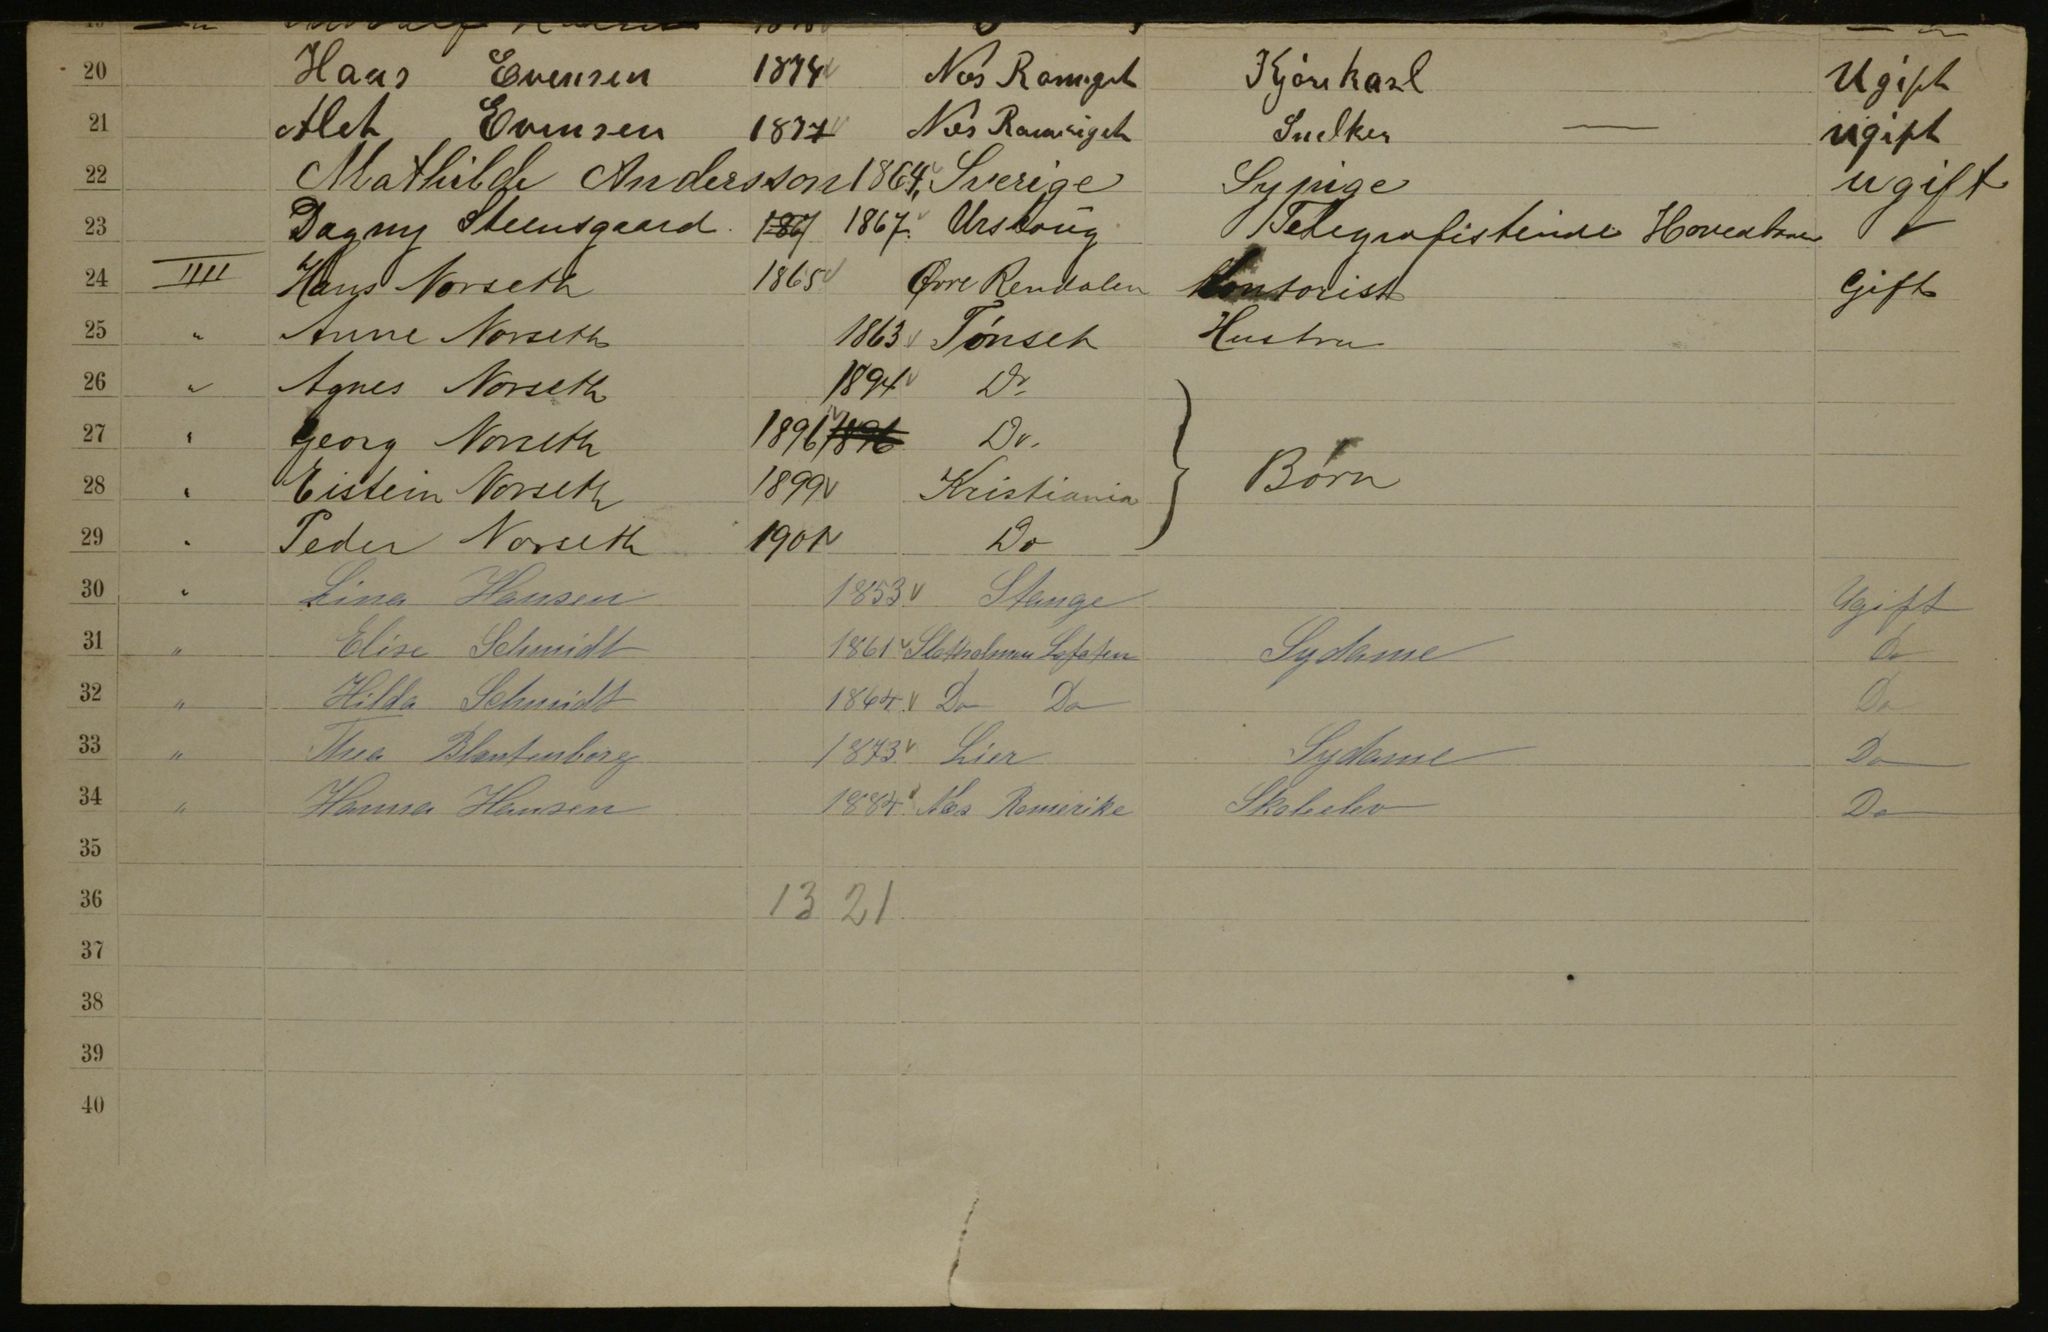 20 Hans Evensen 1874 Næs Romrget Kjørekarl Ugift
21 Alet Evensen 1877 Næs Romeriget Snelker — ugift
22 Mathilde Andersson 1864 Sverige Sypige ugift
23 Dagny Steensgaard 187 1867. Urskoug Telegrafistinde Hovedban
24 IIII Hans Norseth 1865 Øvre Rendalen Kontorist Gift
25 " Anne Norseth 1863 Tønset Hustru
26 " Agnes Norseth 1894 Do.
27 " Georg Norseth 1896 1896 Do.
28 " Eistein Norseth 1899 Kristiania Børn
29 " Peder Norseth 1901 Do
30 " Lina Hansen 1853 Stange Ugift
31 " Elise Schmidt 1861 Lofoten Sydame Do
32 " Hilda Schmidt 1864 Do Do Do
33 " Thea Blantenborg 1873 Lier Sydame Do
34 " Hanna Hansen 1884 Næs Romerike Skoleelev Do
35
36 13 21
37
38
39
40